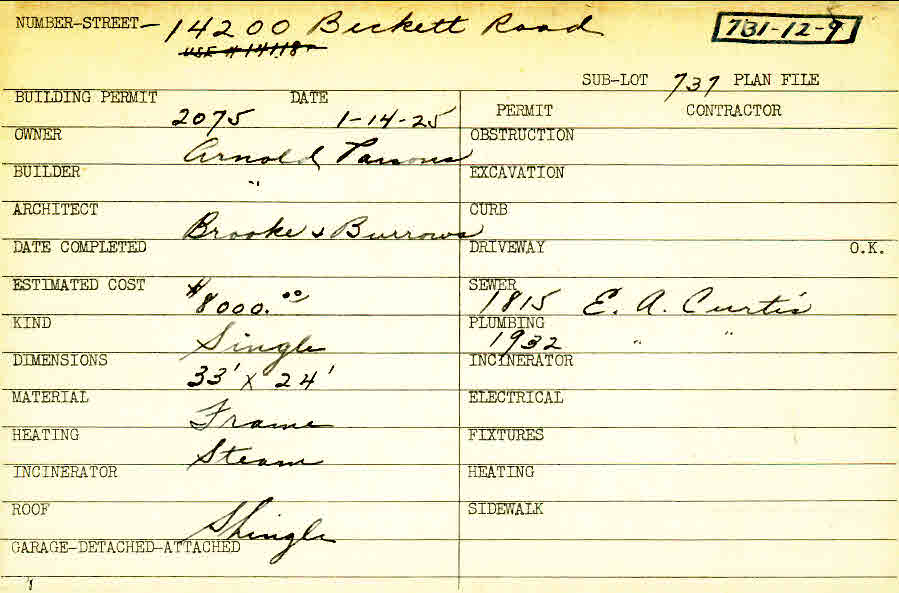 NUMBER-STREET- 14200 Beckett Road 731-12-9
USE # 14118
SUB-LOT 737 PLAN FILE
BUILDING PERMIT DATE PERMIT CONTRACTOR
2075 1-14-25
OWNER Arnold Parsons OBSTRUCTION
BUILDER " EXCAVATION
ARCHITECT Brooke & Burrows CURB
DATE COMPLETED DRIVEWAY O.K.
ESTIMATED COST $8000.00 SEWER 1815 E. A. Curtis
KIND Single PLUMBING 1932 " "
DIMENSIONS 33' x 24' INCINERATOR
MATERIAL Frame ELECTRICAL
HEATING Steam FIXTURES
INCINERATOR HEATING
ROOF Shingle SIDEWALK
GARAGE-DETACHED-ATTACHED